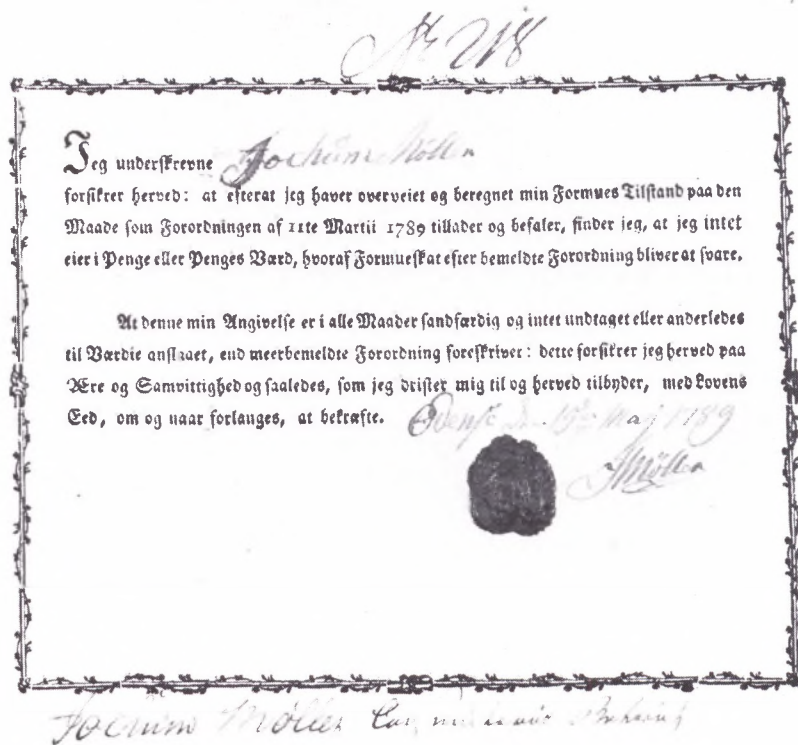 No 218
Jeg underskrevne Jochum Møller
forsikrer herved: at efterat jeg haver overveiet og beregnet min Formues Tilstand paa den
Maade som Forordningen af 11te Martii 1789 tillader og befaler, finder jeg, at jeg intet
eier i Penge eller Penges Værd, hvoraf Formueskat efter bemeldte Forordning bliver at svare.
At denne min Angivelse er i alle Maader sandfærdig og intet undtaget eller anderledes
til Værdie anslaaet, end meerbemeldte Forordning foreskriver: dette forsikrer jeg herved paa
Ære og Samvittighed og saaledes, som jeg drister mig til og herved tilbyder, med Lovens
Eed, om og naar forlanges, at bekræfte. Odense den 15de Maj 1789
JMøller
Jochum Møller